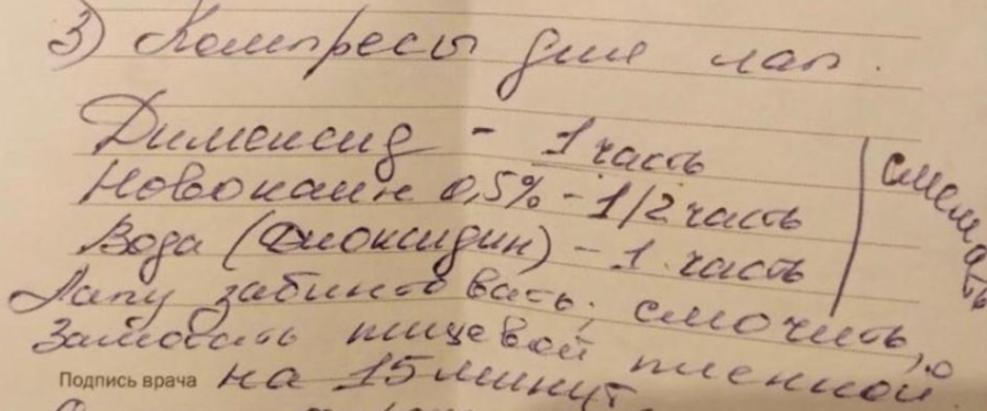 3) Компресы для лап.
Димексид - 1 часть
Новокаин 0,5% - 1/2 часть
Вода (Диоксидин) - 1 часть
смешать
Лапу забинтовать, смочить,
Замотать пищевой пленкой
Подпись врача на 15 минут